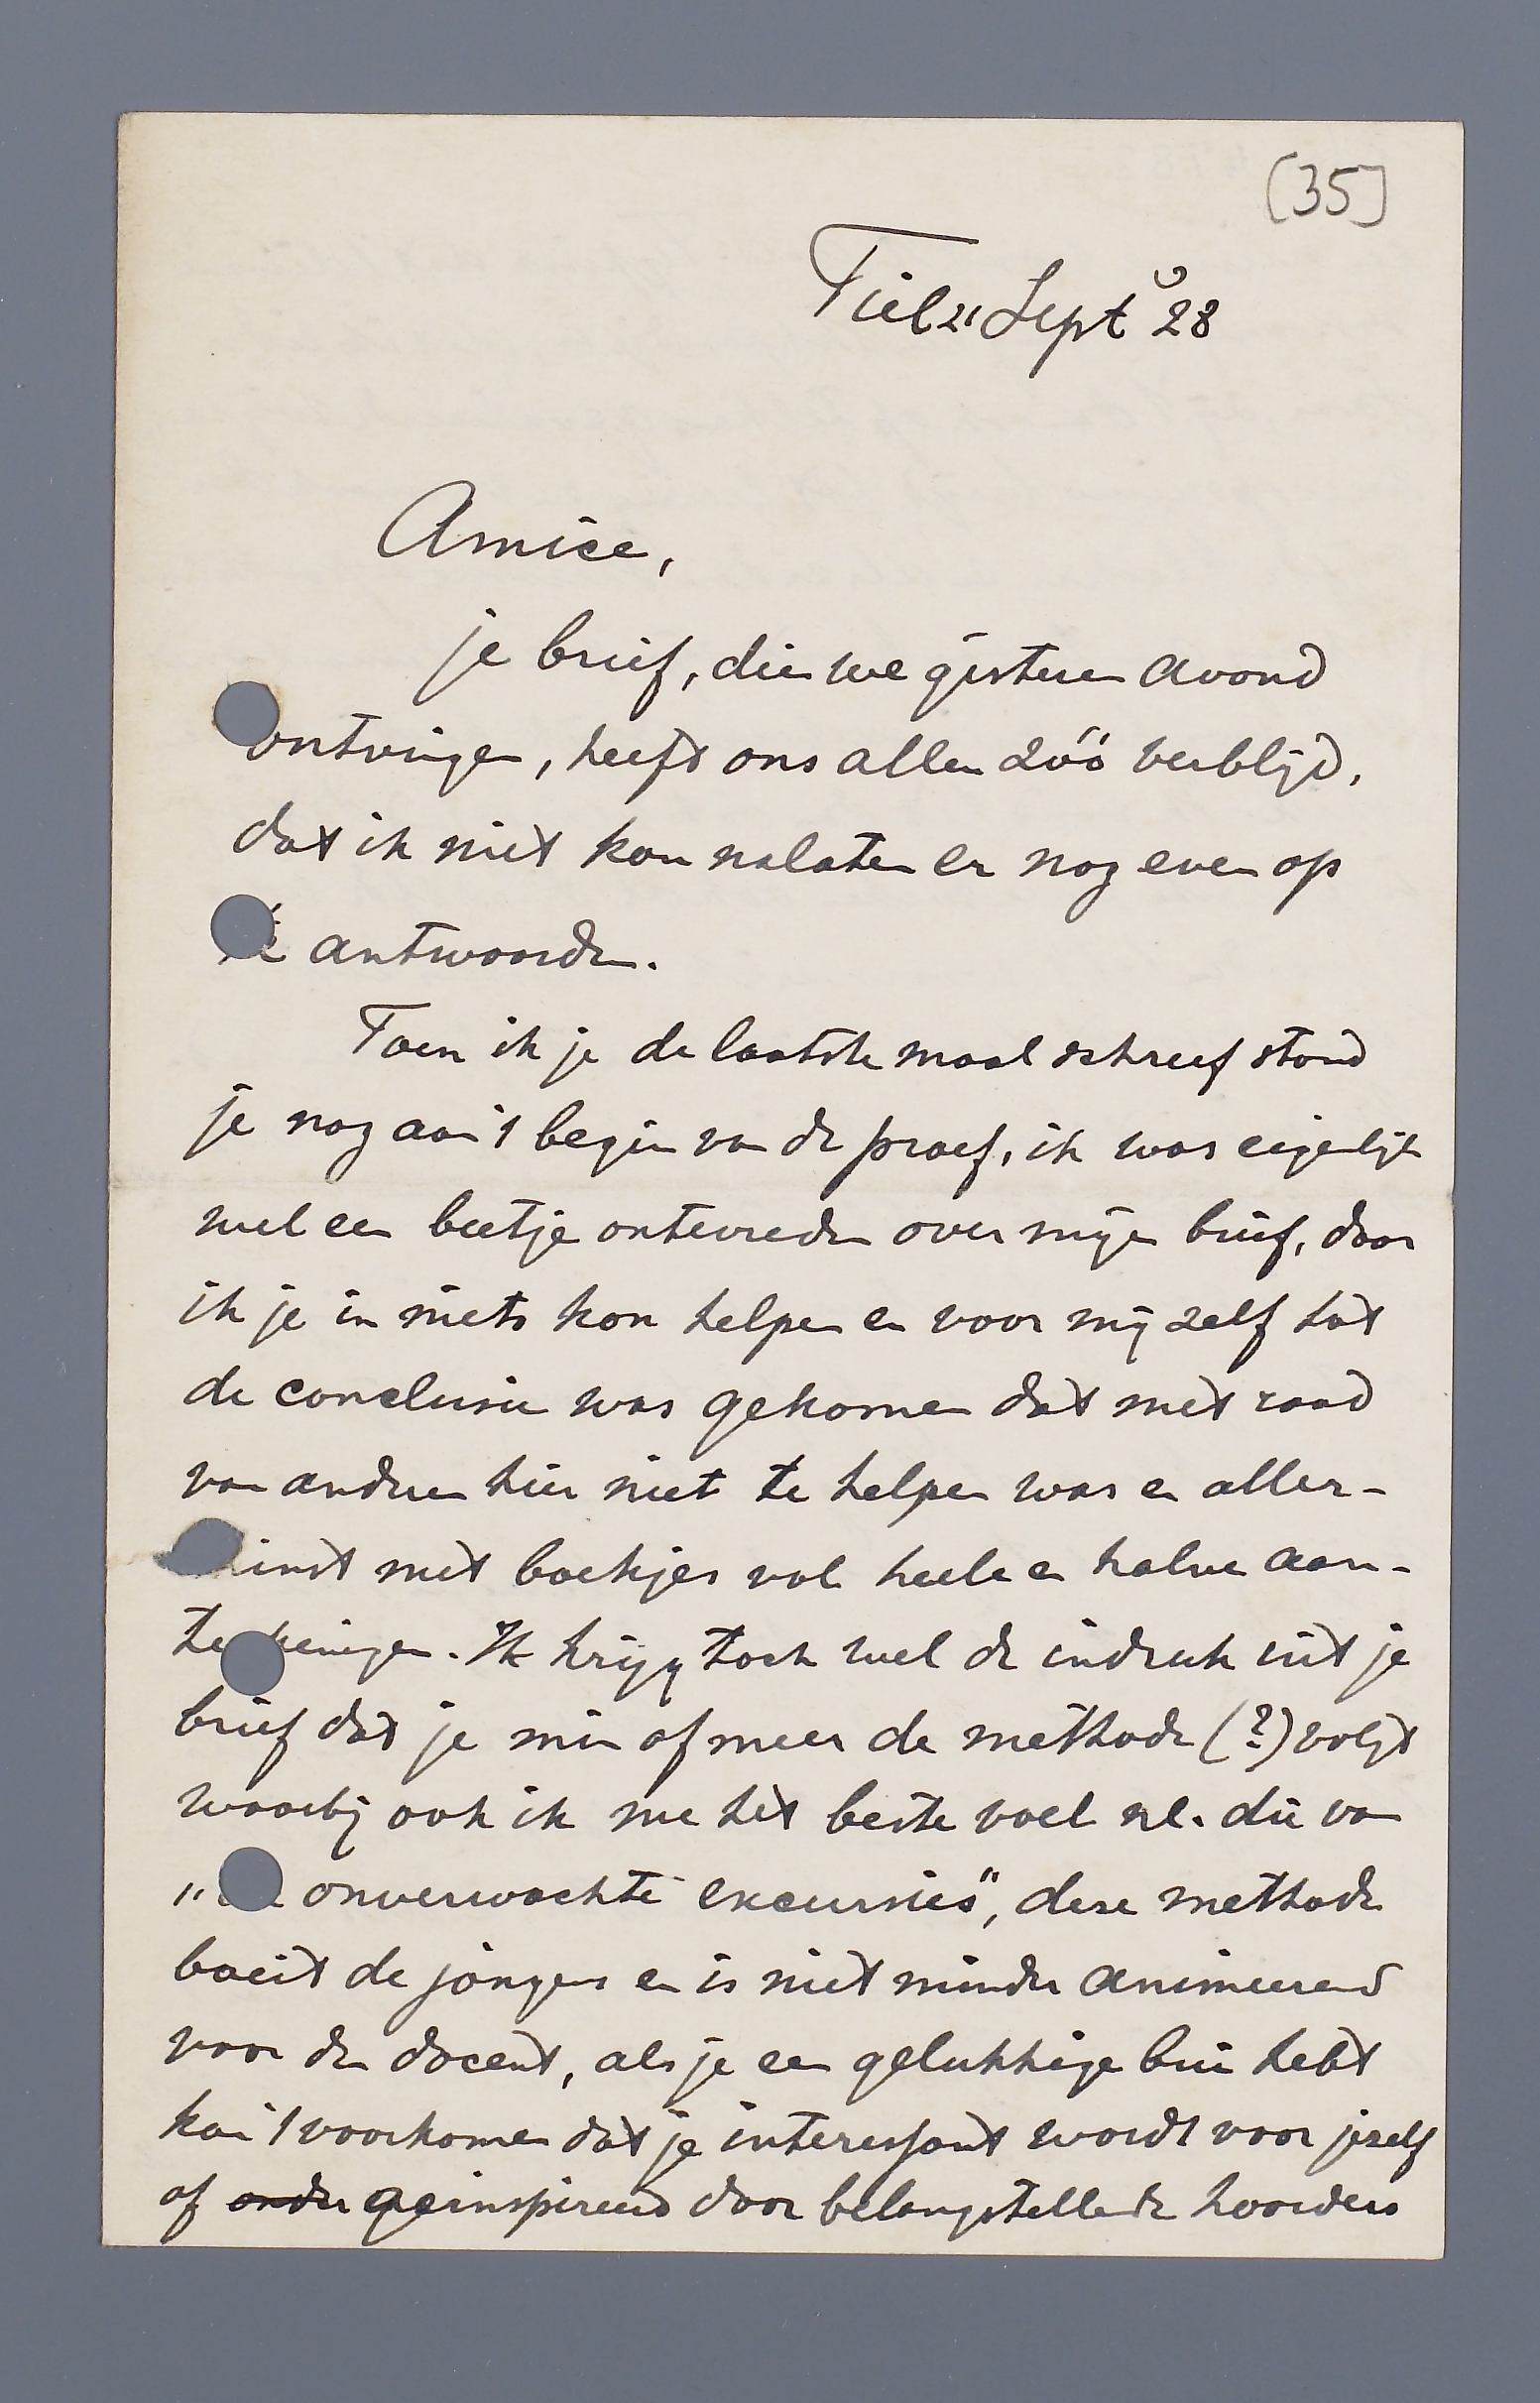 [35]
Tiel 21 Sept '28
Amice,
je brief, dien we gisteren avond
ontvingen, heeft ons allen zóó verblijd,
dat ik niet kon nalaten er nog even op
te antwoorden.
Toen ik je de laatste maal schreef stond
je nog aan 't begin van de proef, ik was eigenlijk
wel een beetje ontevreden over mijn brief, daar
ik je in niets kon helpen en voor mij zelf tot
de conclusie was gekomen dat met raad
van anderen hier niet te helpen was en aller-
minst met boekjes vol heele en halve aan-
teekeningen. Ik krijg toch wel de indruk uit je
brief dat je min of meer de methode (?) volgt
waarbij ook ik me het beste voel nl. die van
"de onverwachte excursies", deze methode
boeit de jongens en is niet minder animeerend
voor den docent, als je een gelukkige bui hebt
kan 't voorkomen dat je interessant wordt voor jezelf
of onder geinspireerd door belangstellende hoorders